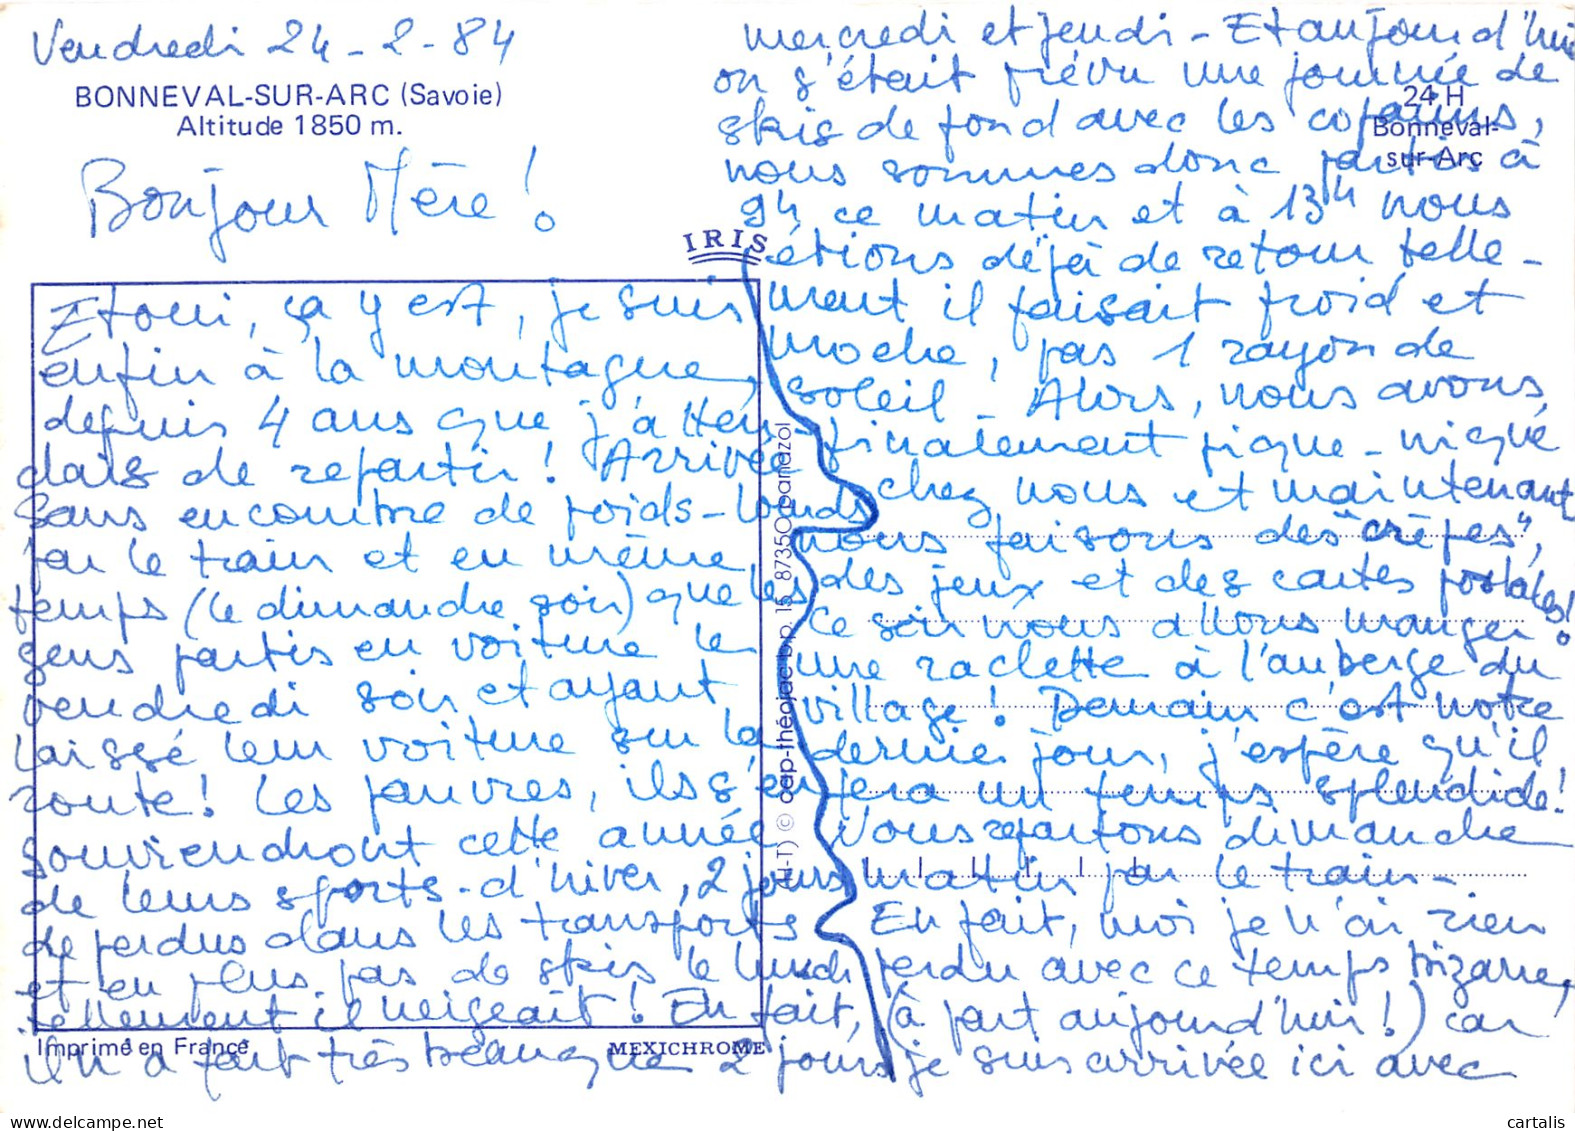 Vendredi 24-2-84
BONNEVAL-SUR-ARC (Savoie)
Altitude 1850 m.
Bonjour Mère !
Et oui, ça y est, je suis
enfin à la montagne,
depuis 4 ans que j'atten-
dais de repartir ! Arrivée
sans encombre de poids-lourds
par le train et en même
temps (le dimanche soir) que les
gens partis en voiture le
vendredi soir et ayant
laissé leur voiture sur la
route ! Les pauvres, ils s'en
souviendront cette année
de leurs sports-d'hiver, 2 jours
de perdus dans les transports
et en plus pas de skis le lundi
tellement il neigeait ! En fait,
il n'a fait très beau que 2 jours
Imprimé en France
MEXICHROME
IRIS
(H-T) © cap-théojac b.p. 15 87350 panazol
24 H
Bonneval-
sur-Arc
mercredi et jeudi - Et aujourd'hui
on s'était prévu une journée de
skis de fond avec les copains,
nous sommes donc partis à
9h ce matin et à 13h nous
étions déjà de retour telle-
ment il faisait froid et
moche, pas 1 rayon de
soleil - Alors, nous avons
finalement pique-niqué
chez nous et maintenant
nous faisons des "crêpes",
des jeux et des cartes postales !
Ce soir nous allons manger
une raclette à l'auberge du
village ! Demain c'est notre
dernier jour, j'espère qu'il
fera un temps splendide !
Nous repartons dimanche
matin par le train -
En fait, moi je n'ai rien
perdu avec ce temps bizarre,
(à part aujourd'hui !) car
je suis arrivée ici avec
cartalis